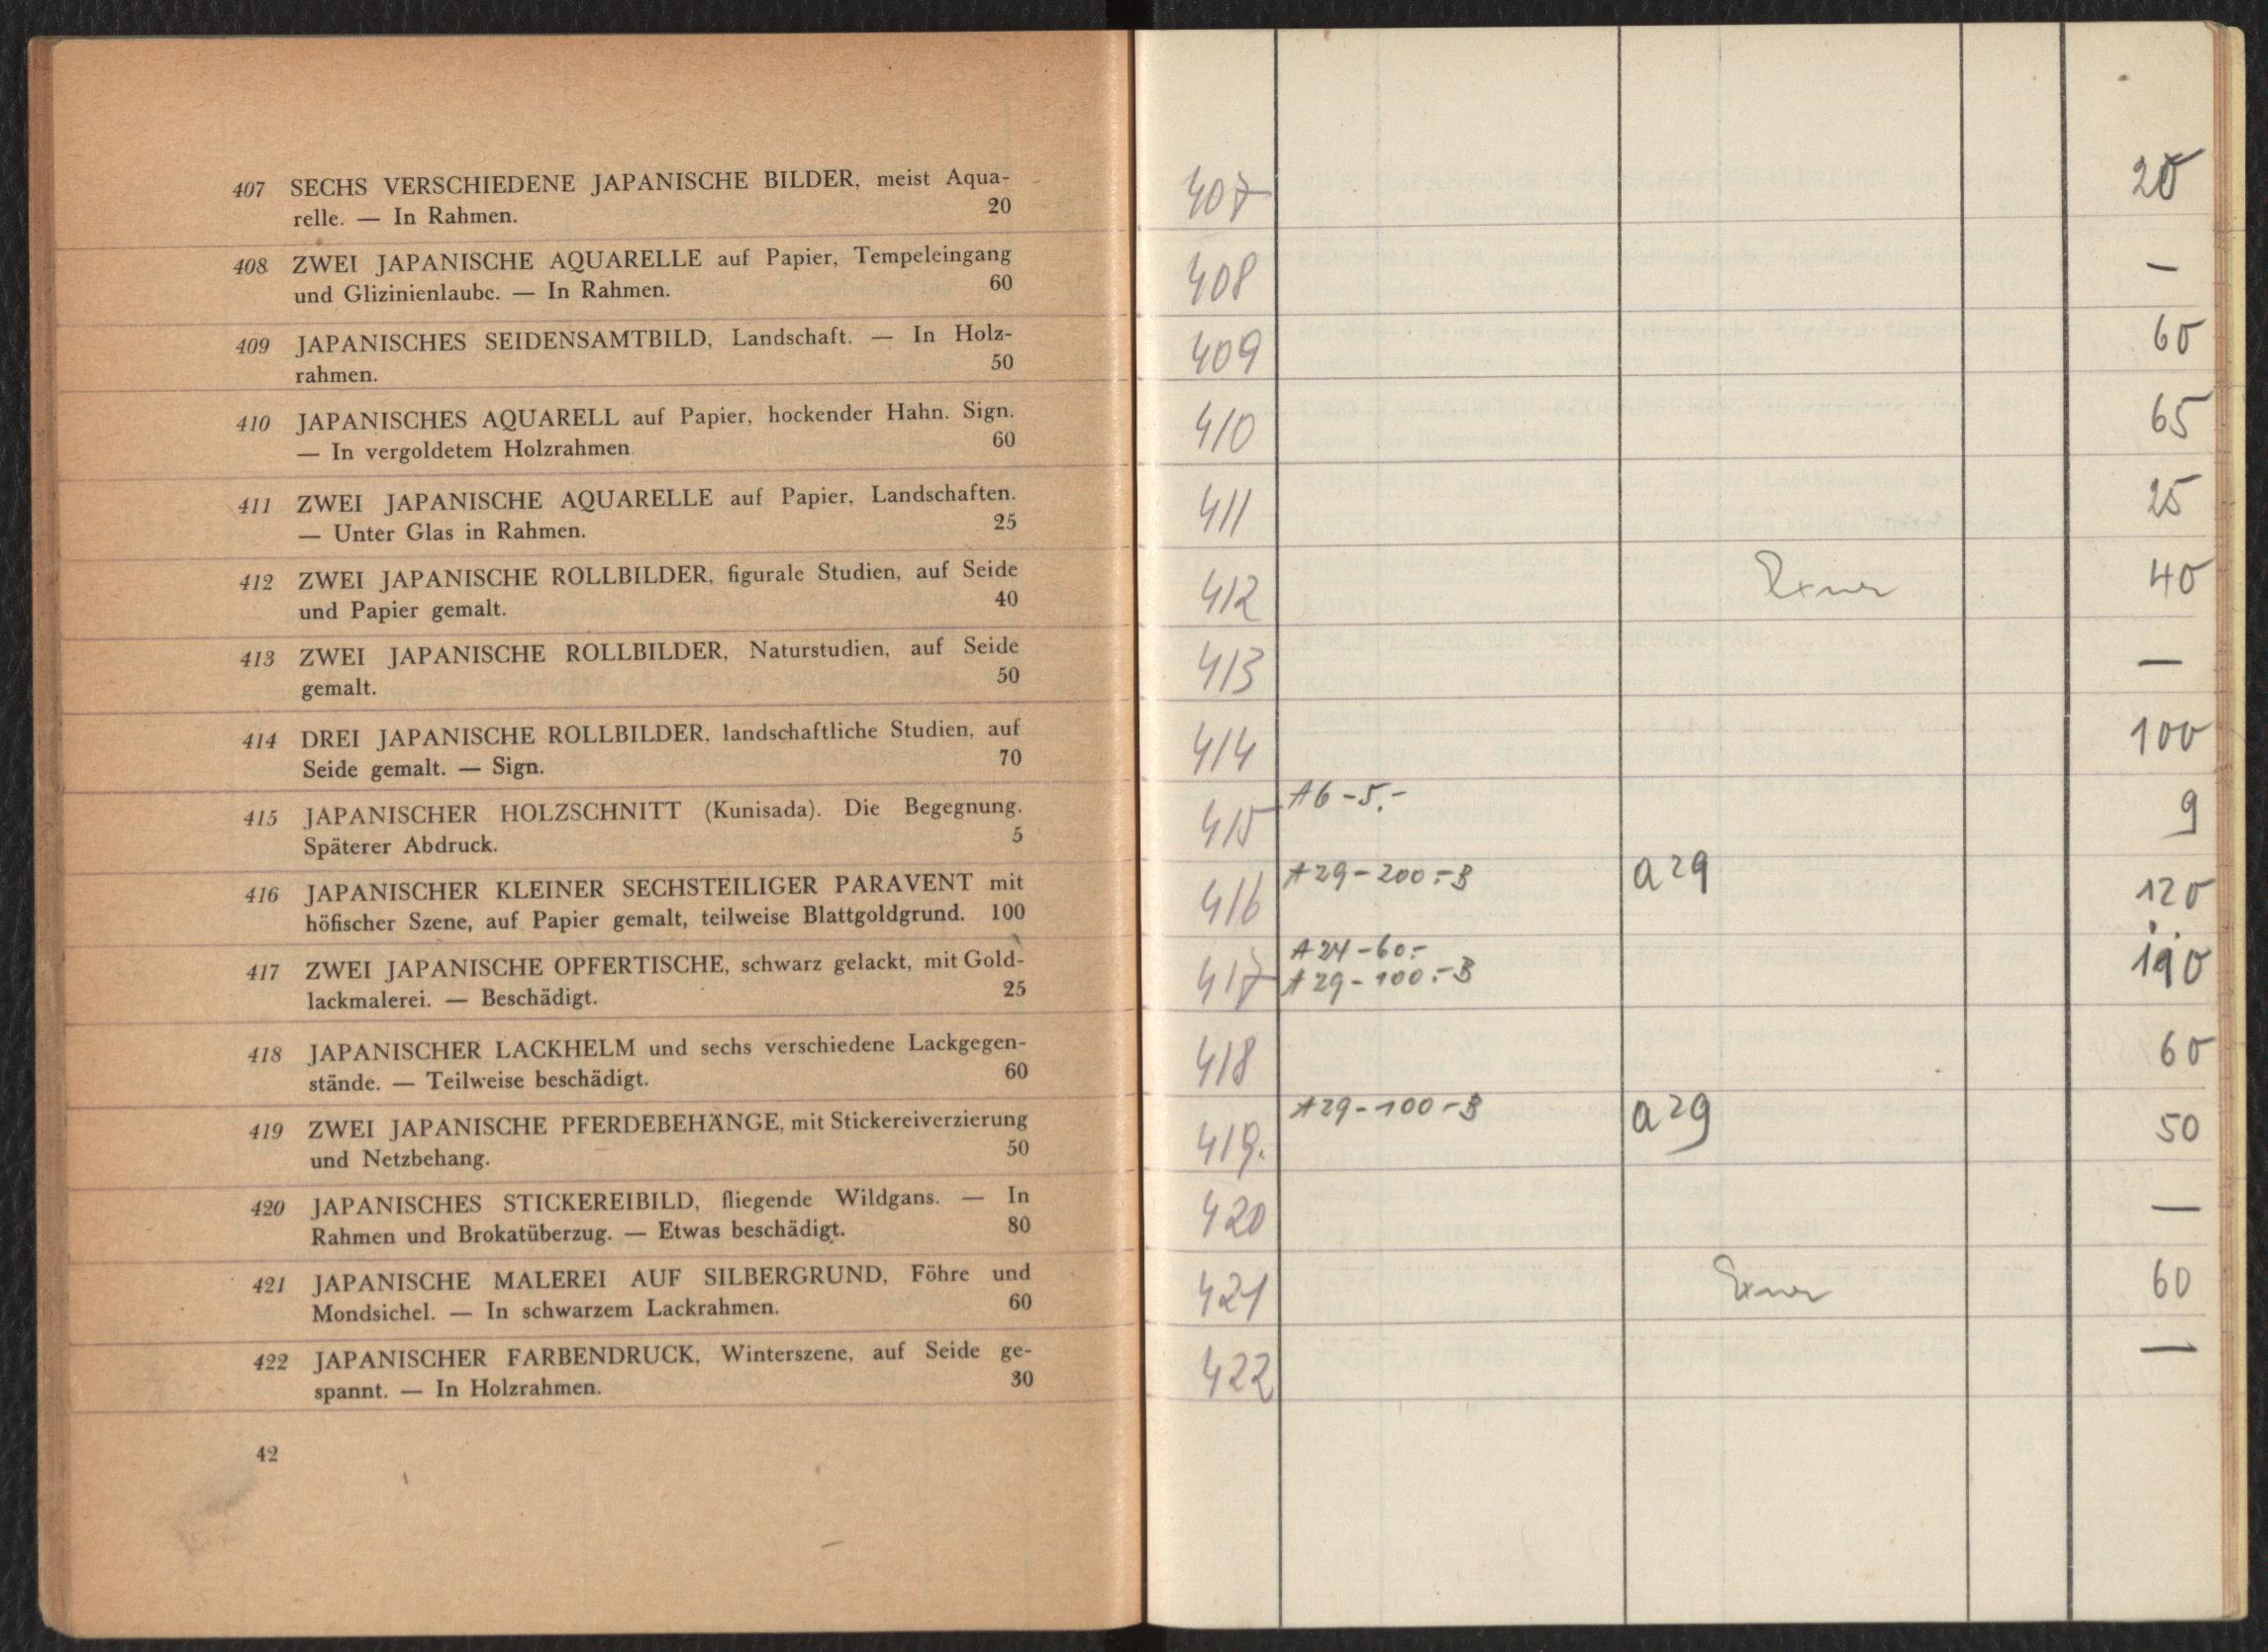 407 SECHS VERSCHIEDENE JAPANISCHE BILDER, meist Aqua-
relle. — In Rahmen. 20
408 ZWEI JAPANISCHE AQUARELLE auf Papier, Tempeleingang
und Glizinienlaube. — In Rahmen. 60
409 JAPANISCHES SEIDENSAMTBILD, Landschaft. — In Holz-
rahmen. 50
410 JAPANISCHES AQUARELL auf Papier, hockender Hahn. Sign.
— In vergoldetem Holzrahmen 60
411 ZWEI JAPANISCHE AQUARELLE auf Papier, Landschaften.
— Unter Glas in Rahmen. 25
412 ZWEI JAPANISCHE ROLLBILDER, figurale Studien, auf Seide
und Papier gemalt. 40
413 ZWEI JAPANISCHE ROLLBILDER, Naturstudien, auf Seide
gemalt. 50
414 DREI JAPANISCHE ROLLBILDER, landschaftliche Studien, auf
Seide gemalt. — Sign. 70
415 JAPANISCHER HOLZSCHNITT (Kunisada). Die Begegnung.
Späterer Abdruck. 5
416 JAPANISCHER KLEINER SECHSTEILIGER PARAVENT mit
höfischer Szene, auf Papier gemalt, teilweise Blattgoldgrund. 100
417 ZWEI JAPANISCHE OPFERTISCHE, schwarz gelackt, mit Gold-
lackmalerei. — Beschädigt. 25
418 JAPANISCHER LACKHELM und sechs verschiedene Lackgegen-
stände. — Teilweise beschädigt. 60
419 ZWEI JAPANISCHE PFERDEBEHÄNGE, mit Stickereiverzierung
und Netzbehang. 50
420 JAPANISCHES STICKEREIBILD, fliegende Wildgans. — In
Rahmen und Brokatüberzug. — Etwas beschädigt. 80
421 JAPANISCHE MALEREI AUF SILBERGRUND, Föhre und
Mondsichel. — In schwarzem Lackrahmen. 60
422 JAPANISCHER FARBENDRUCK, Winterszene, auf Seide ge-
spannt. — In Holzrahmen. 30
42
407 20
408 —
409 60
410 65
411 25
412 Exner 40
413 —
414 100
415 A6-5.- 9
416 A29-200.-B a29 120
A24-60.-
417 A29-100.-B 190
418 60
419. A29-100-B a29 50
420 —
421 Exner 60
422 —